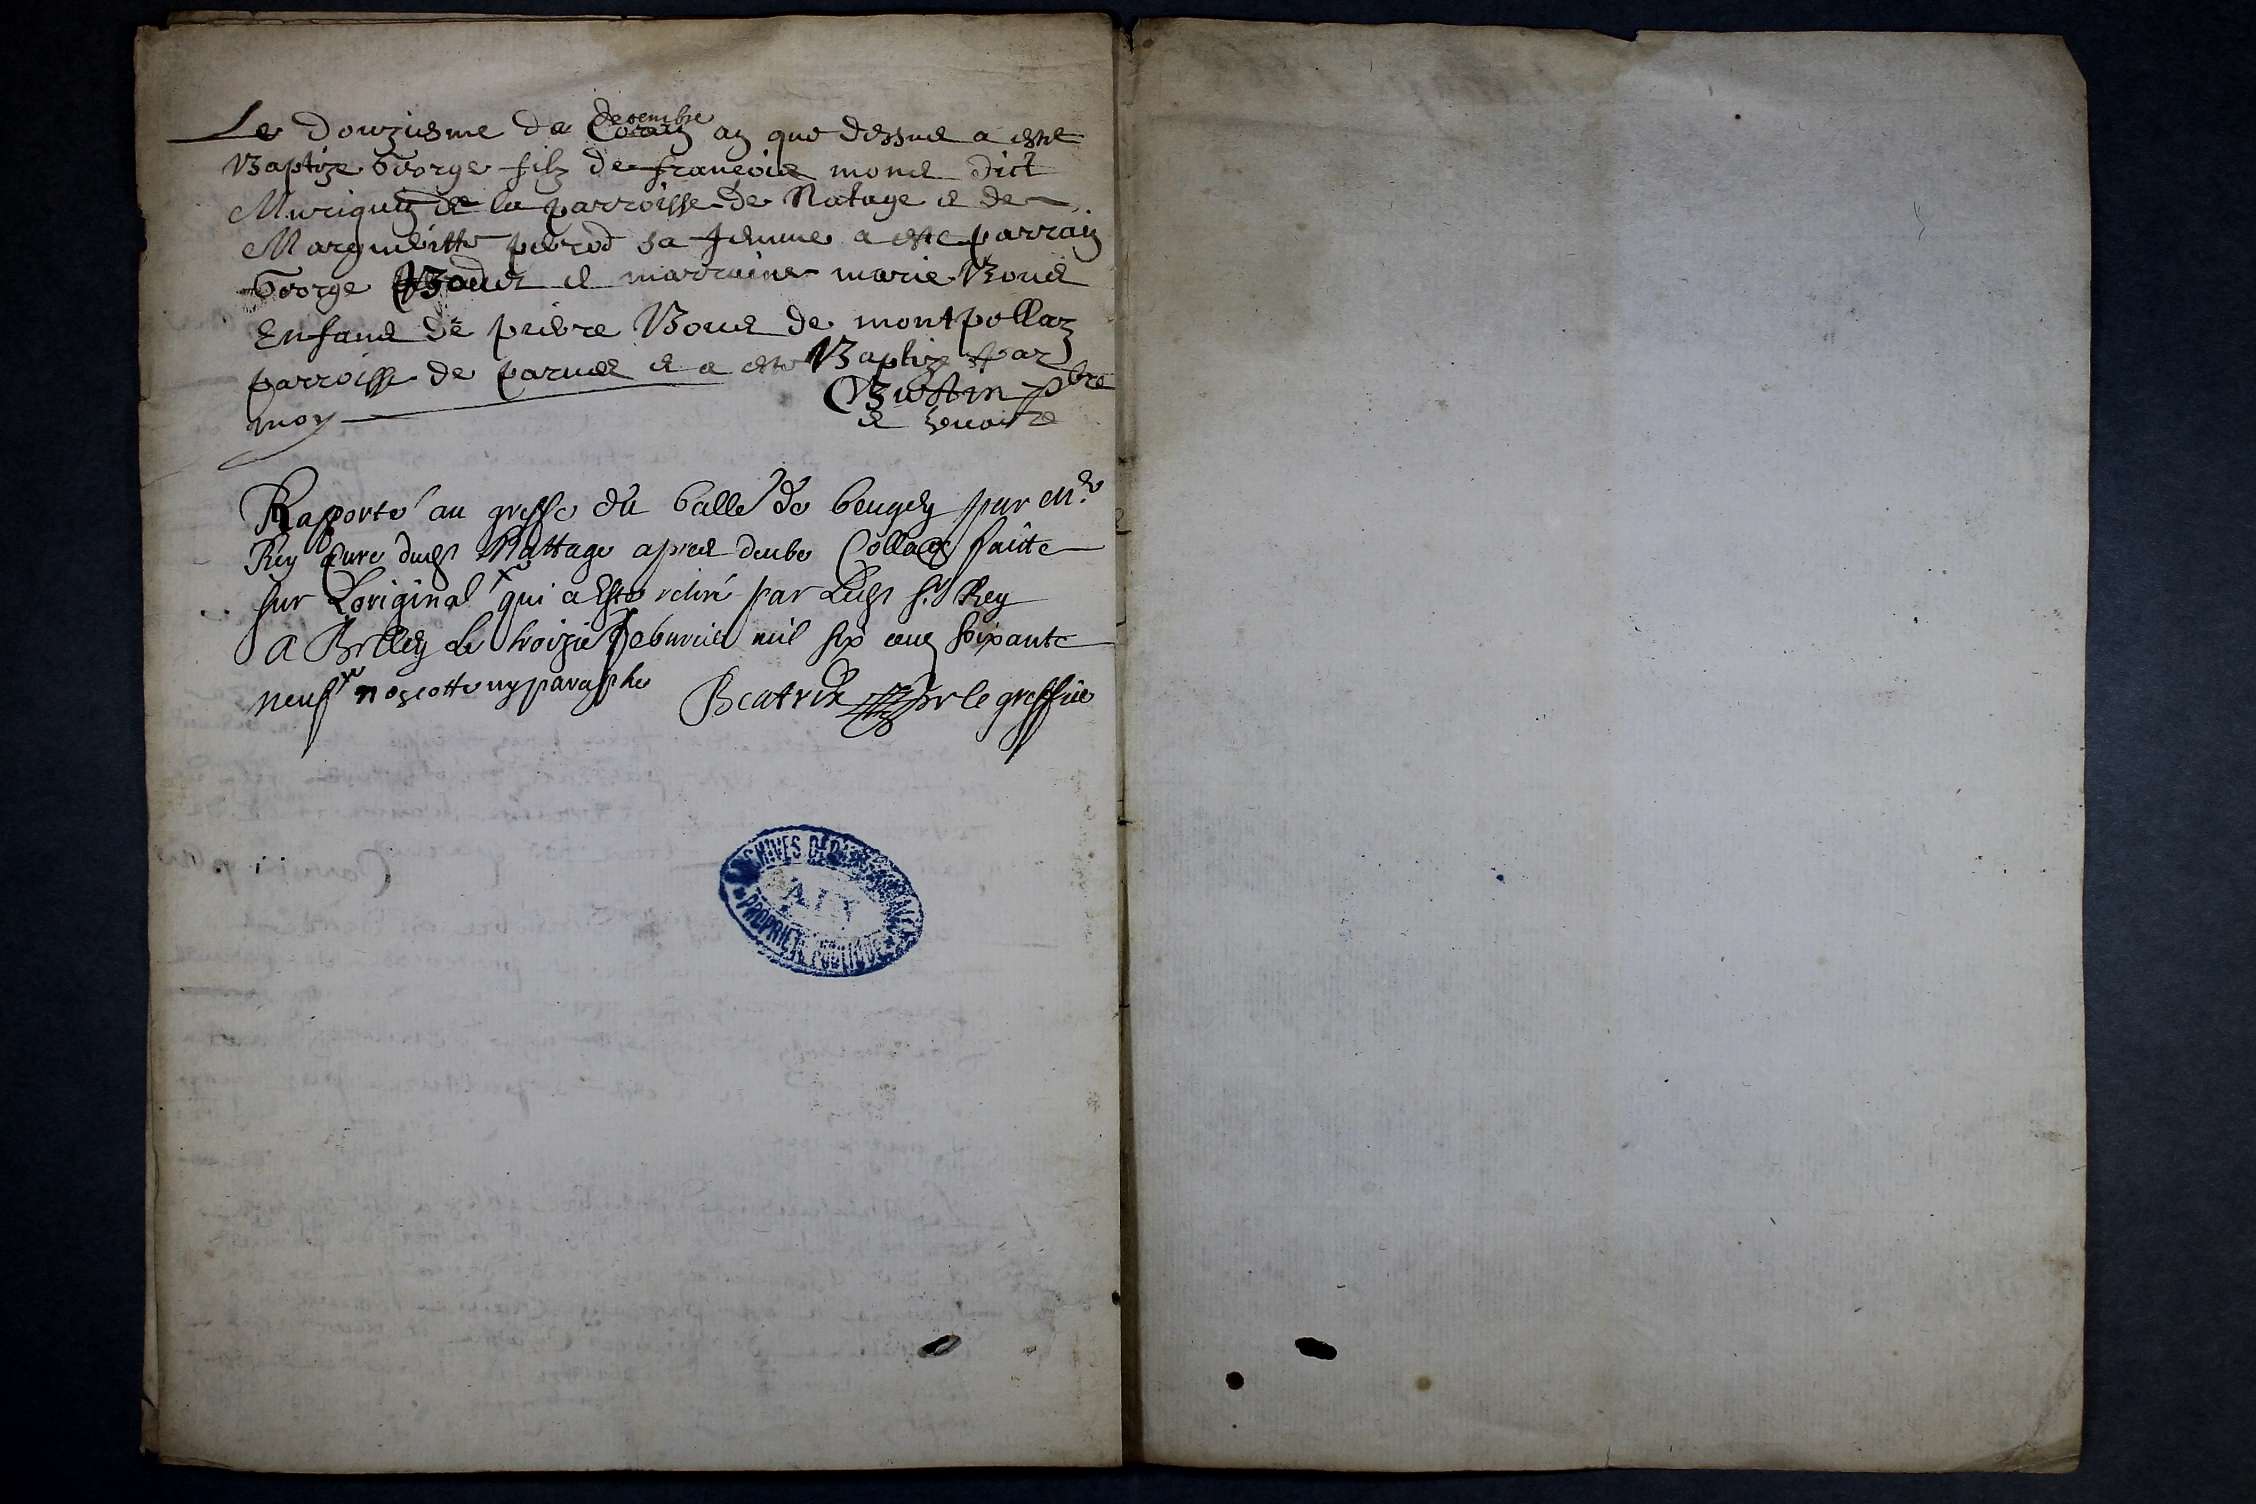 decembre
Le douziesme de an que dessus a esté
Baptizé George filz de françois monet dict
Muriquoz de la parroisse de Natage et de
Margueitte perrod sa femme a esté parrain
George Boués et marraine marie Boues
Enfans de pierre Boues de montpellaz
parroisse de parues et a esté Baptizé par
moy Bustin pbre
et
Rapporté au greffe du balle de beugey par Mre
Rey Curé dudt Nattage apres deube Colla͞on faitte
sur L'original qui a Esté retiré par Ledt Sr Rey
A Belley Le troizie febvrier mil six cens soixante
neuf non cotté ny paraphé Beatrix pr le greffier
ARCHIVES DEPARTEMENTALES
AIN
PROPRIETE PUBLIQUE